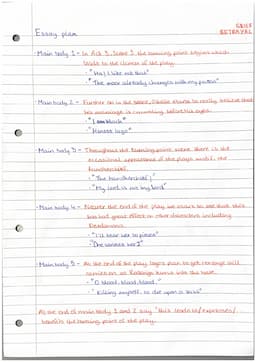 GRIEF
BETRAYAL
Essay plan
Main body 1 - In Act 3, Scene 3, the turning point begins which
leads to the climax of the play.
- "Ha! I like not that"
- "The moor already changes with my poison"
Main body 2 - Further on in the scene, Othello starts to really believe that
his marriage is crumbling before his eyes.
- "I am black"
- "Honest Iago"
Main body 3 - Throughout the turning point scene there is the
occasional appearance of the plays motif; the
handkerchief.
- "The handkerchief!"
- "My lord is not my lord"
Main body 4 - Nearer the end of the play we occurs to see that this
has had great effect on other characters including
Desdemona.
- "I'll tear her to pieces"
Main body 5 - At the end of the play Iagos plan to get revenge will
as Roderigo
- "O blood, blood, blood."
- "Killing myself, to die upon a kiss"
At the end of main body 1 and 2 say "this leads to/expresses/
benefits the turning point of the play.